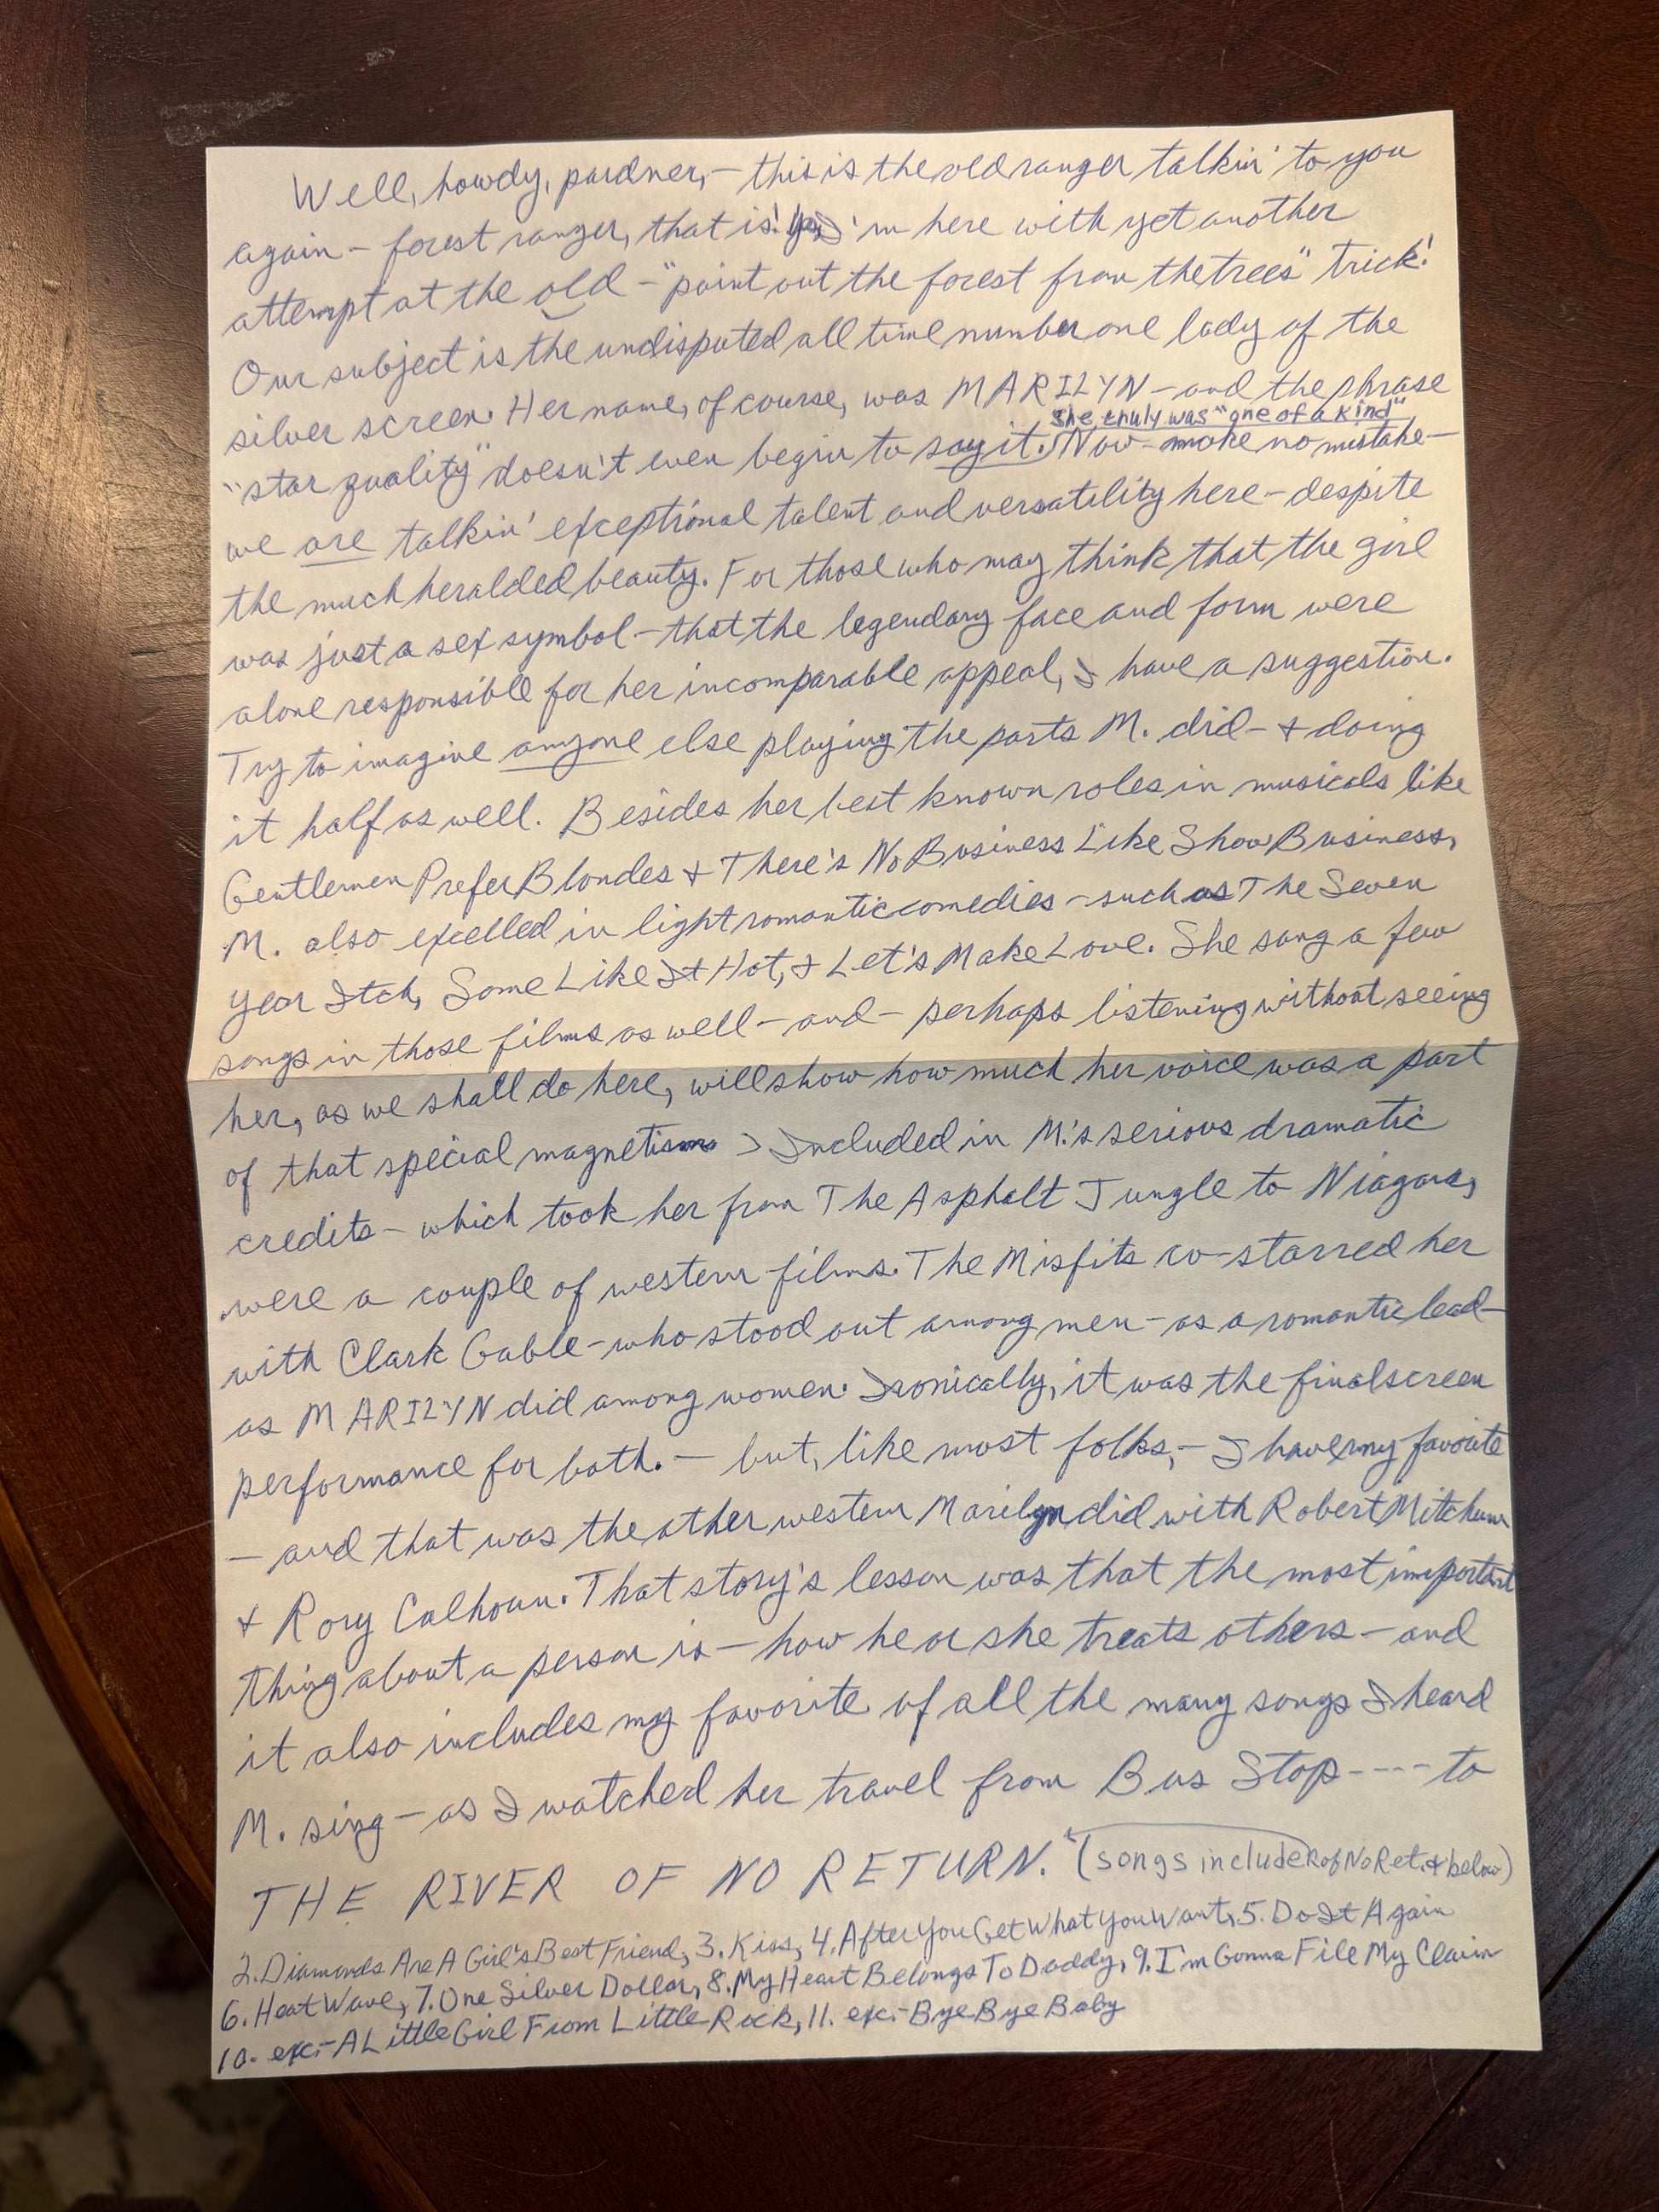 Well, howdy, pardner, – this is the old ranger talkin' to you
again – forest ranger, that is! Yes, I'm here with yet another
attempt at the old – "point out the forest from the trees" trick!
Our subject is the undisputed all time number one lady of the
silver screen. Her name, of course, was MARILYN – and the phrase
She truly was "one of a kind"
"star quality" doesn't even begin to say it. Now – make no mistake –
we are talkin' exceptional talent and versatility here – despite
the much heralded beauty. For those who may think that the girl
was just a sex symbol – that the legendary face and form were
alone responsible for her incomparable appeal, I have a suggestion.
Try to imagine anyone else playing the parts M. did – & doing
it half as well. Besides her best known roles in musicals like
Gentlemen Prefer Blondes & There's No Business Like Show Business,
M. also excelled in light romantic comedies – such as The Seven
Year Itch, Some Like It Hot, & Let's Make Love. She sang a few
songs in those films as well – and – perhaps listening without seeing
her, as we shall do here, will show how much her voice was a part
of that special magnetism > Included in M.'s serious dramatic
credits – which took her from The Asphalt Jungle to Niagara,
were a couple of western films. The Misfits co-starred her
with Clark Gable – who stood out among men – as a romantic lead –
as MARILYN did among women. Ironically, it was the final screen
performance for both. – but, like most folks, – I have my favorite
– and that was the other western Marilyn did with Robert Mitchum
& Rory Calhoun. That story's lesson was that the most important
thing about a person is – how he or she treats others – and
it also includes my favorite of all the many songs I heard
M. sing – as I watched her travel from Bus Stop ---- to
THE RIVER OF NO RETURN. (songs include R of No Ret. & below)
2. Diamonds Are A Girl's Best Friend, 3. Kiss, 4. After You Get What You Want, 5. Do It Again
6. Heat Wave, 7. One Silver Dollar, 8. My Heart Belongs To Daddy, 9. I'm Gonna File My Claim
10. exc. – A Little Girl From Little Rock, 11. exc. – Bye Bye Baby